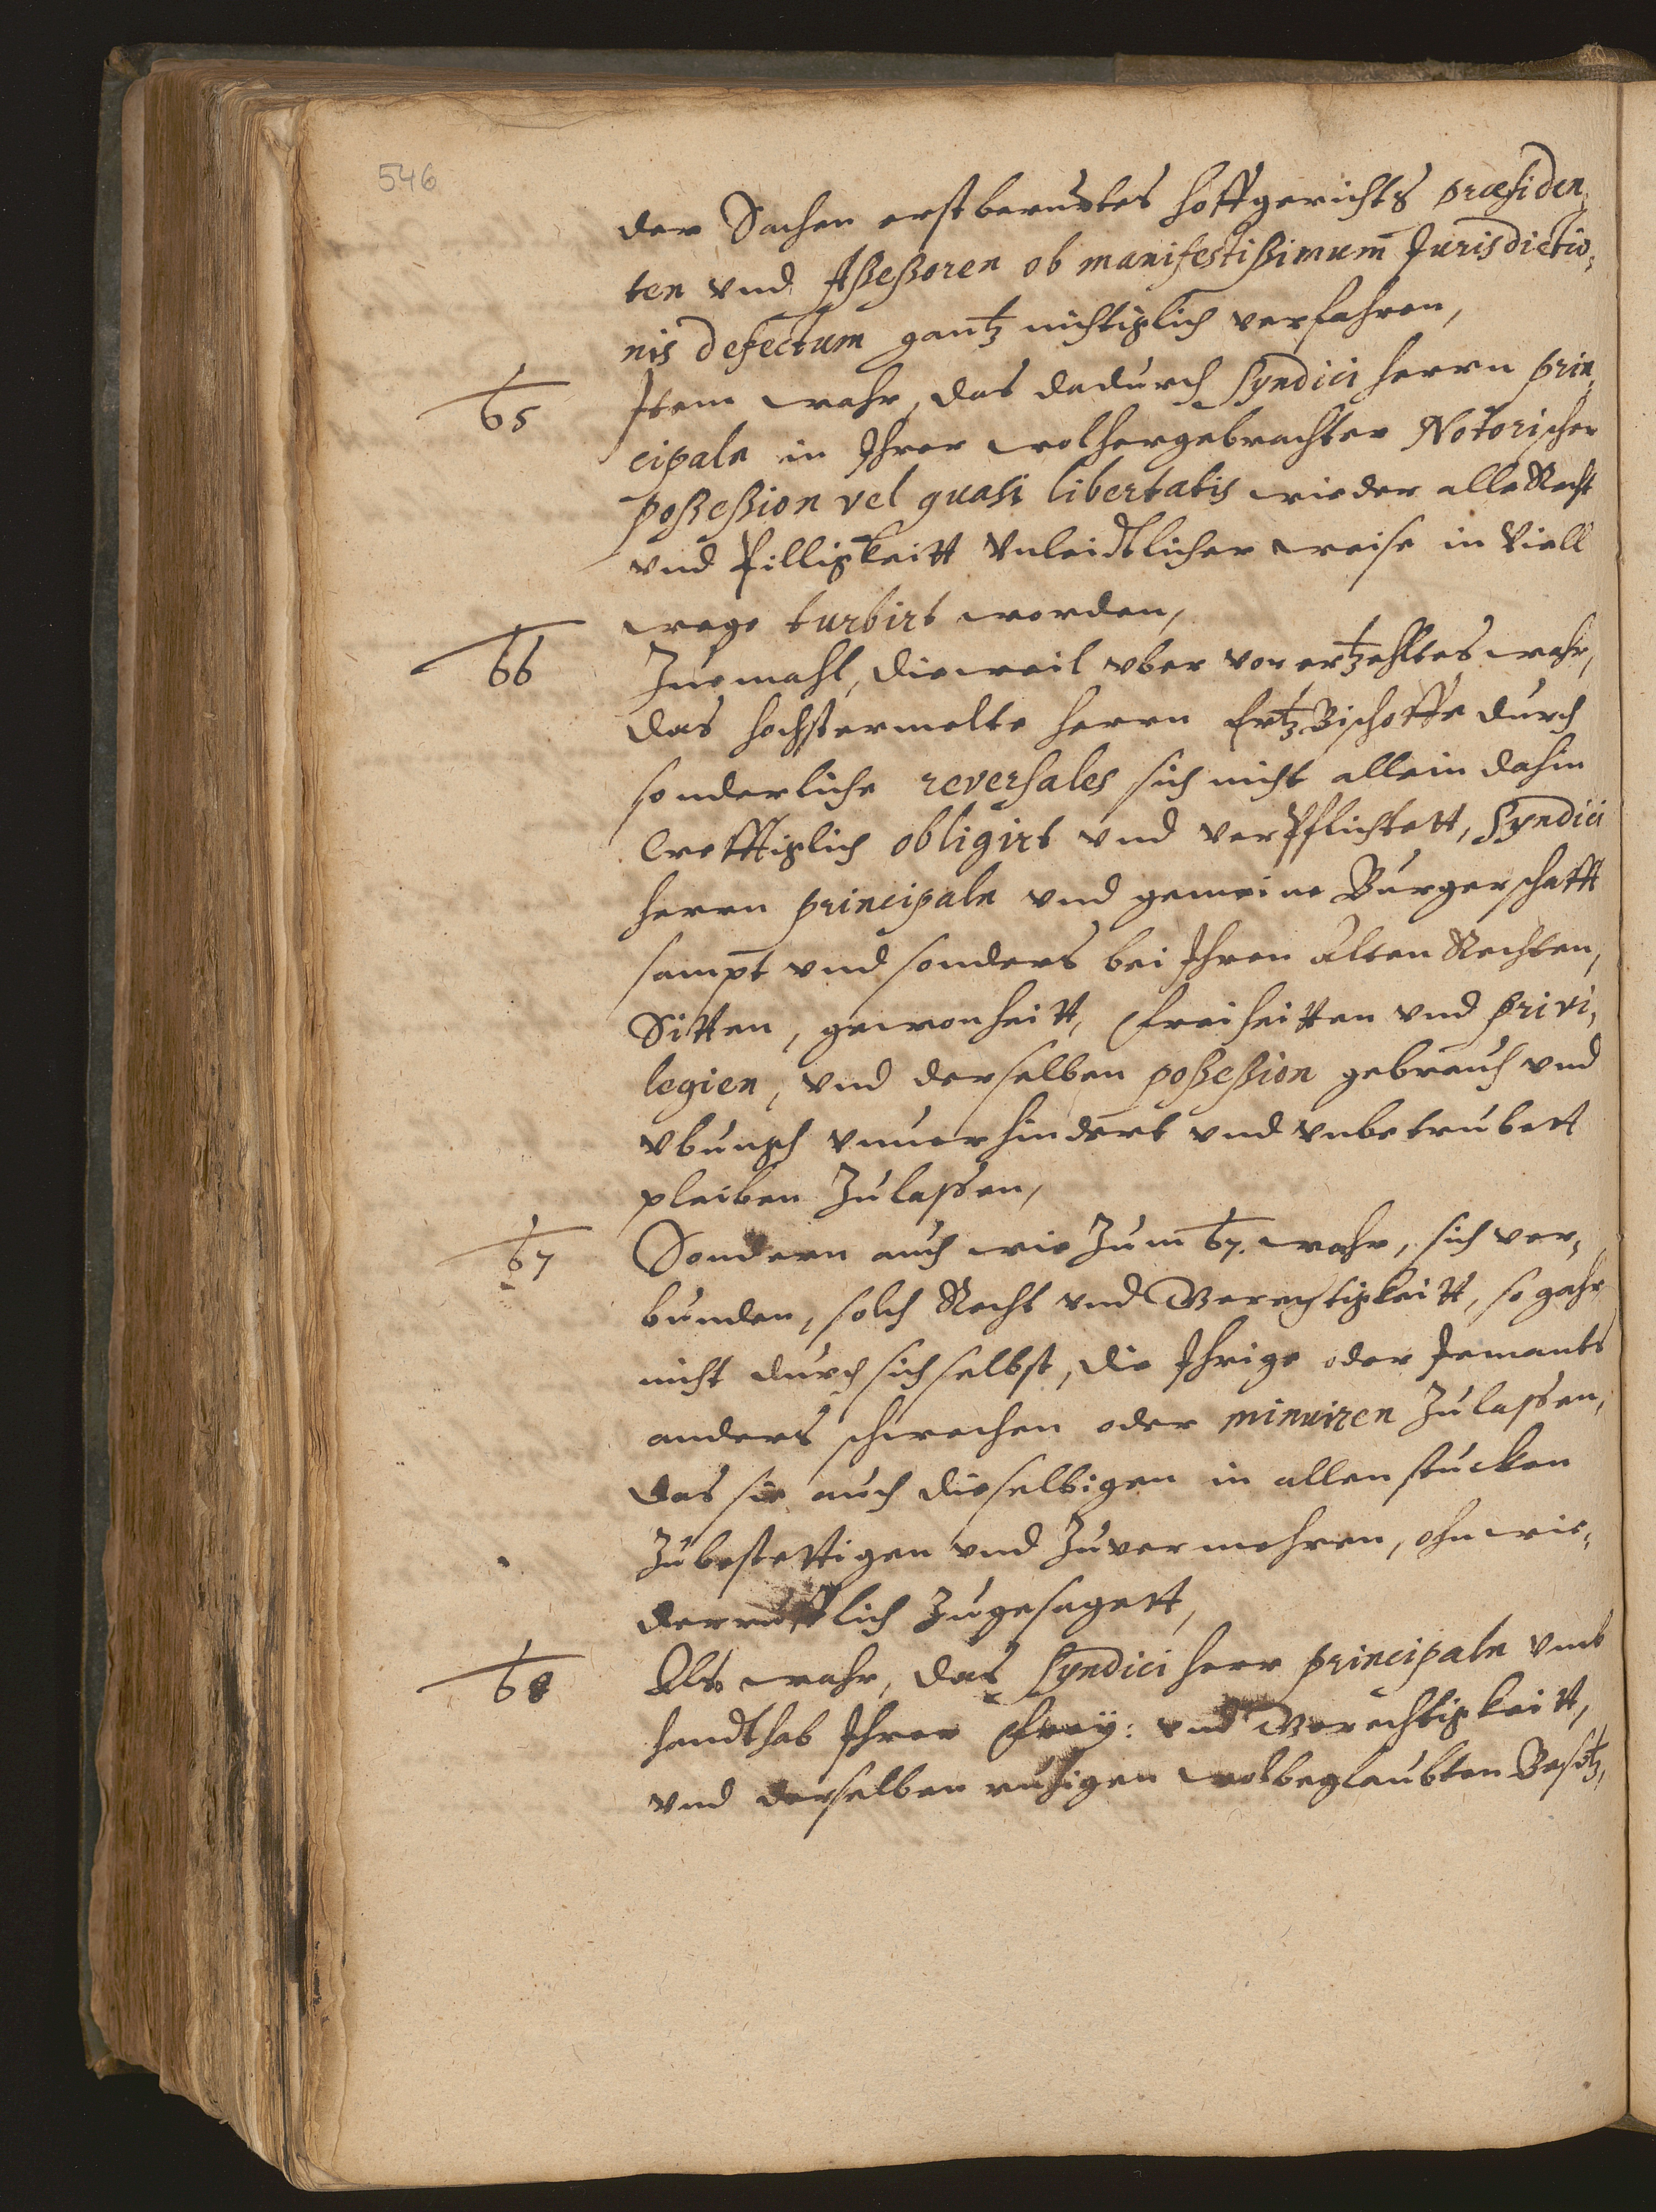 546
der Sachen erst berurtes Hoffgerichts Præsiden,
ten vnd Aßeßoren ob manifestißimum Jurisdictio,
nis defectum gantz nichtiglich verfahren,
65 Item wahr, das dadurch Syndici Herrn Prin,
cipaln in Ihrer wolhergebrachter Notorischer
poßeßion vel quasi libertatis wieder alle Recht
vnd Pilligkeitt vnleidtlicher weise in Viell
wege turbirt worden,
66 Zuemahl, dieweil vber vor ertzehltes wahr,
das hochstermelte Herrn Ertz Bischoffe durch
sonderliche reversales sich nicht allein dahin
Creffitglich obligirt vnd verpflichtett, Syndici
Herrn principaln vnd gemeine Burgerschafft
sampt vnd sonders bei Ihren alten Rechten,
Sitten, gewonheitt, Freiheitten vnd Privi,
legien, vnd derselben poßeßion gebrauch vnd
vbungh vnuerhindert vnd vnbetrubett
pleiben Zulassen,
67 Sondern auch wie Zum 67. wahr, sich ver,
bunden, solch Recht vnd Gerechtigkeitt, so gahr
nicht durch sich selbst, die Ihrige oder Jemants
anders schwechen oder minuiren Zulassen,
das sie auch dieselbigen in allen stucken
Zubestettigen vnd Zuvermehren, ohnwie,
derrufflich Zugesagett,
68 Ob wahr, das Syndici Herr principaln vmb
handthab Ihrer Frey: vnd Gerechtigkeitt,
vnd derselben ruhigen wolbeglaubten Besitz,